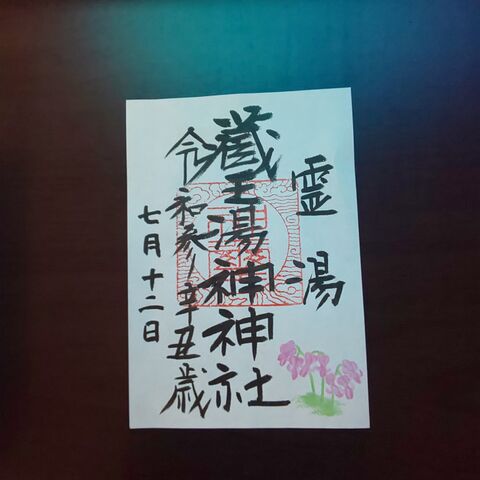 霊湯
蔵王湯神神社
令和参年辛丑歳
七月十二日